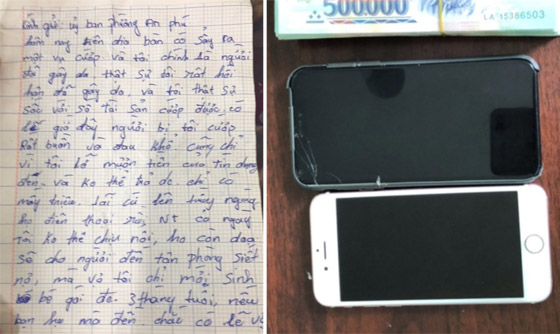 kính gửi ủy ban phường An phú
hôm nay trên địa bàn có sảy ra
một vụ cướp và tôi chính là người
đã gây da, thật sự tôi rất hối
hận đã gây da, và tôi thật sự
sốc với số tài sản cướp được, có
lẽ giờ đây người bị tôi cướp
Rất buồn và đau khổ cũng chỉ
vì tôi lỡ mượn tiền của Tín dụng
đen và ko thể trả dc chỉ có
mấy triệu. lãi cứ lên từng ngày
họ điện thoại rồi, NT cả ngày
tôi ko thể chịu nổi, họ còn doạ
sẽ cho người đến tân phòng siết
nợ, mà vợ tôi chỉ mới sinh
bé gái dc 3 tháng tuổi, nếu
bọn họ mà đến chắc có lẽ vợ
500.000
LA 15386503